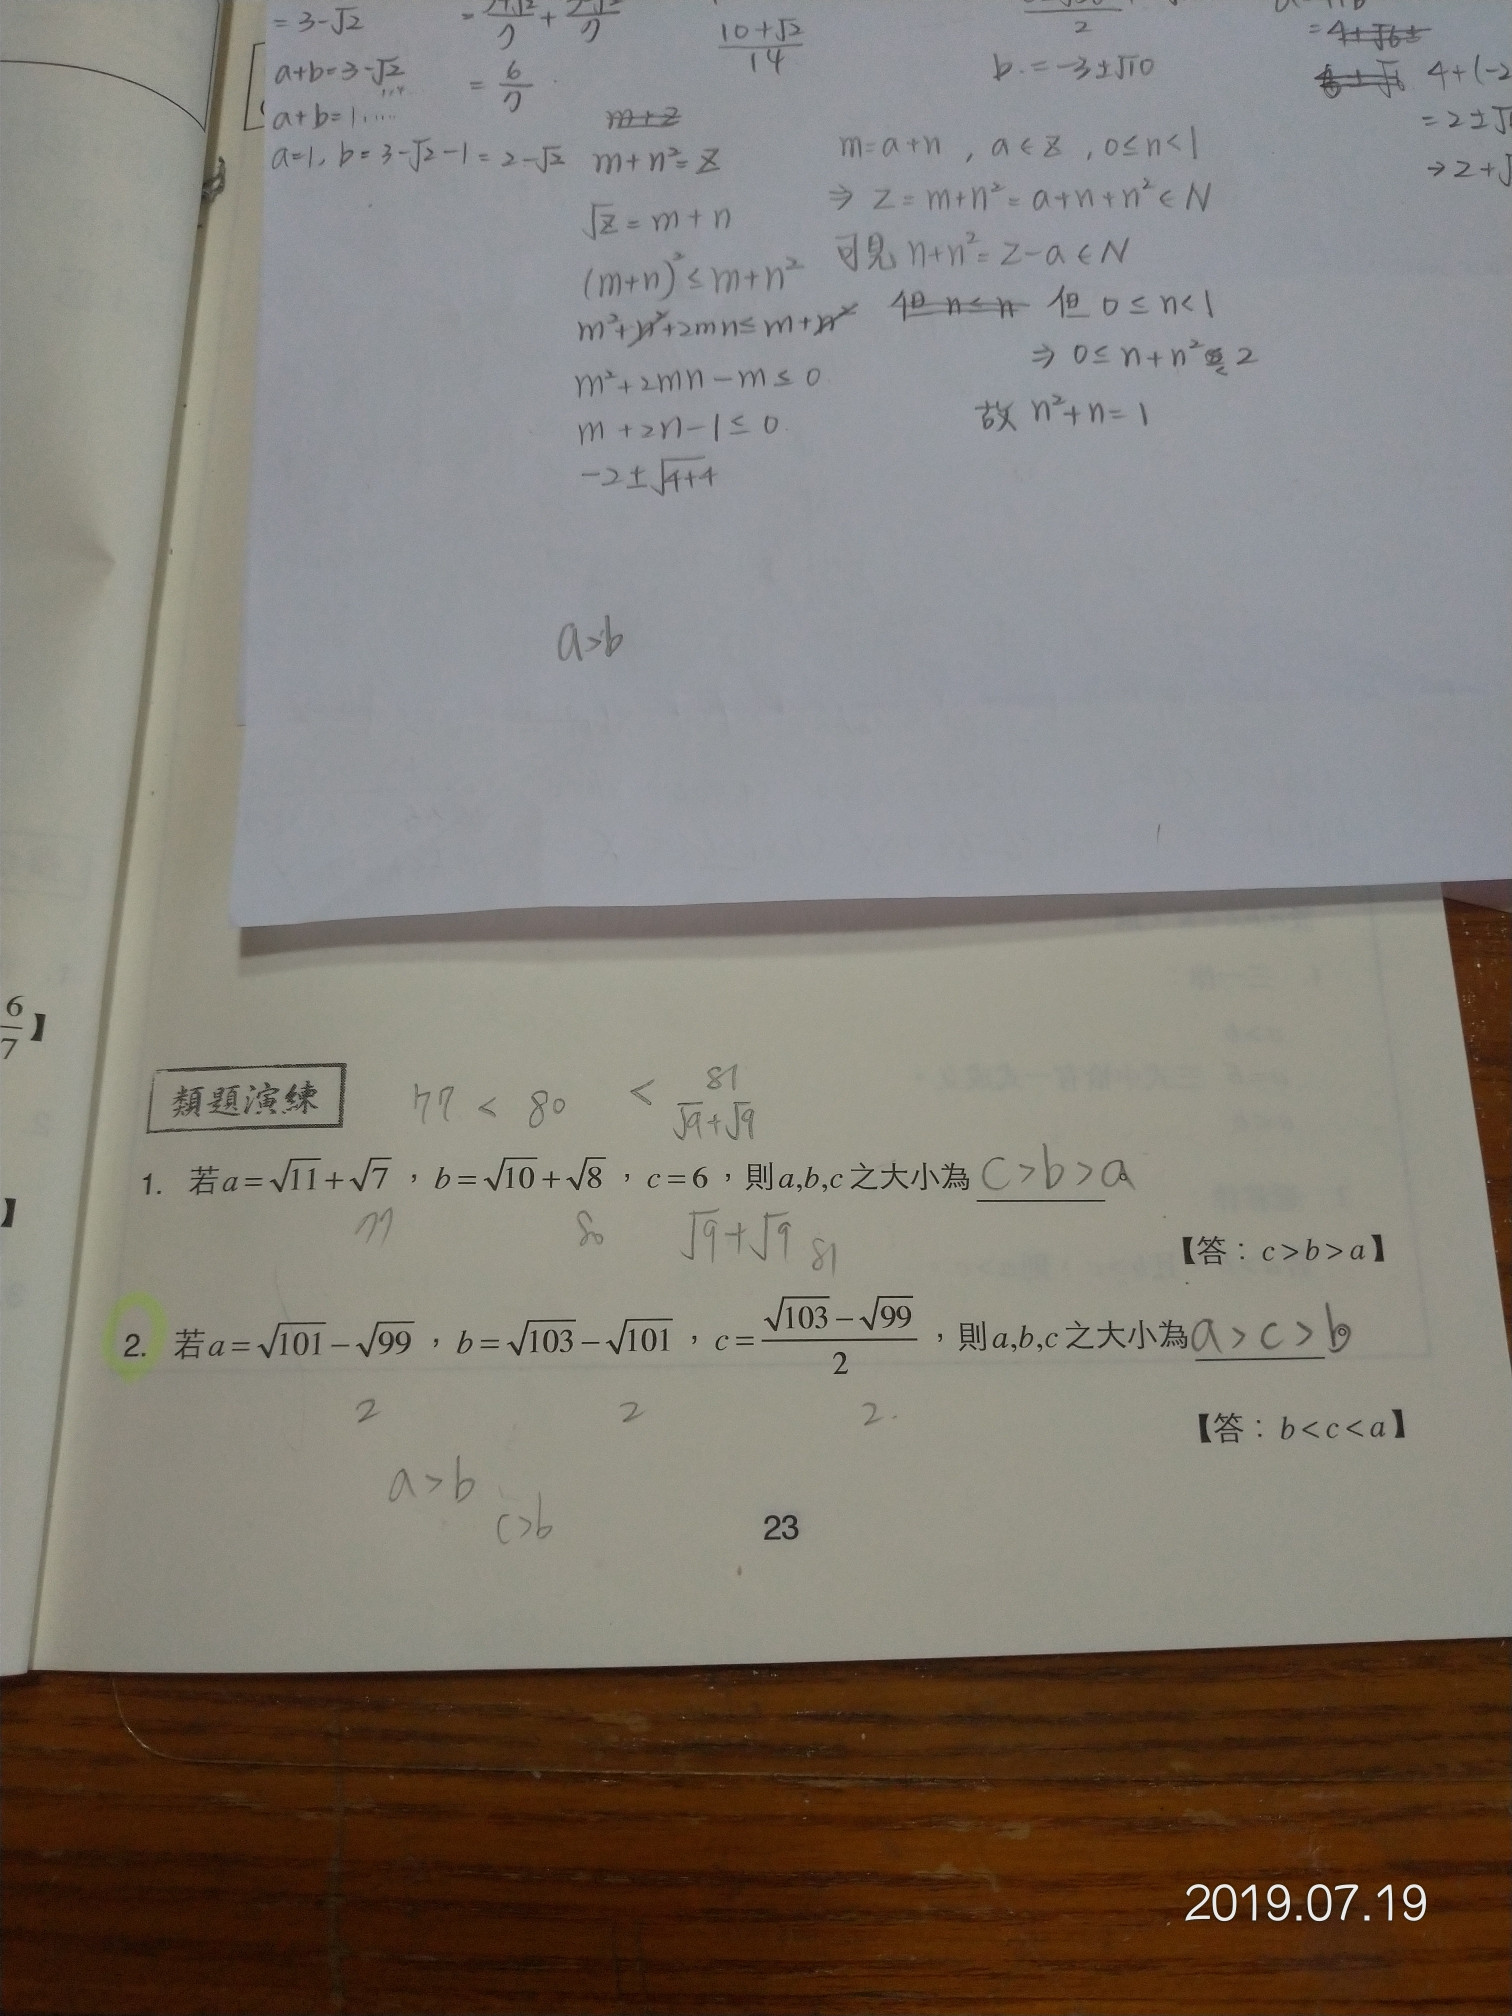 = 3-√2
a+b=3-√2
a+b=1.....
a=1, b=3-√2-1=2-√2
= 6/7
(10+√2)/14
b = -3±√10
4+(-2
=2±√
→2+√
m+z
m+n²=Z
√Z=m+n
(m+n)²≤m+n²
m²+n²+2mn≤m+n²
m²+2mn-m≤0
m+2n-1≤0
-2±√4+4
m=a+n , a∈Z , 0≤n<1
⇒ Z=m+n²=a+n+n²∈N
可見 n+n²=Z-a∈N
但 n≤n 但 0≤n<1
⇒ 0≤n+n²<2
故 n²+n=1
a>b
6/7】
】
類題演練
77 < 80 < 81
√9+√9
1. 若a=√11+√7，b=√10+√8，c=6，則a,b,c之大小為 c>b>a
77 80 √9+√9 81
【答：c>b>a】
2. 若a=√101-√99，b=√103-√101，c=(√103-√99)/2，則a,b,c之大小為 a>c>b
2 2 2
【答：b<c<a】
a>b
c>b
23
2019.07.19